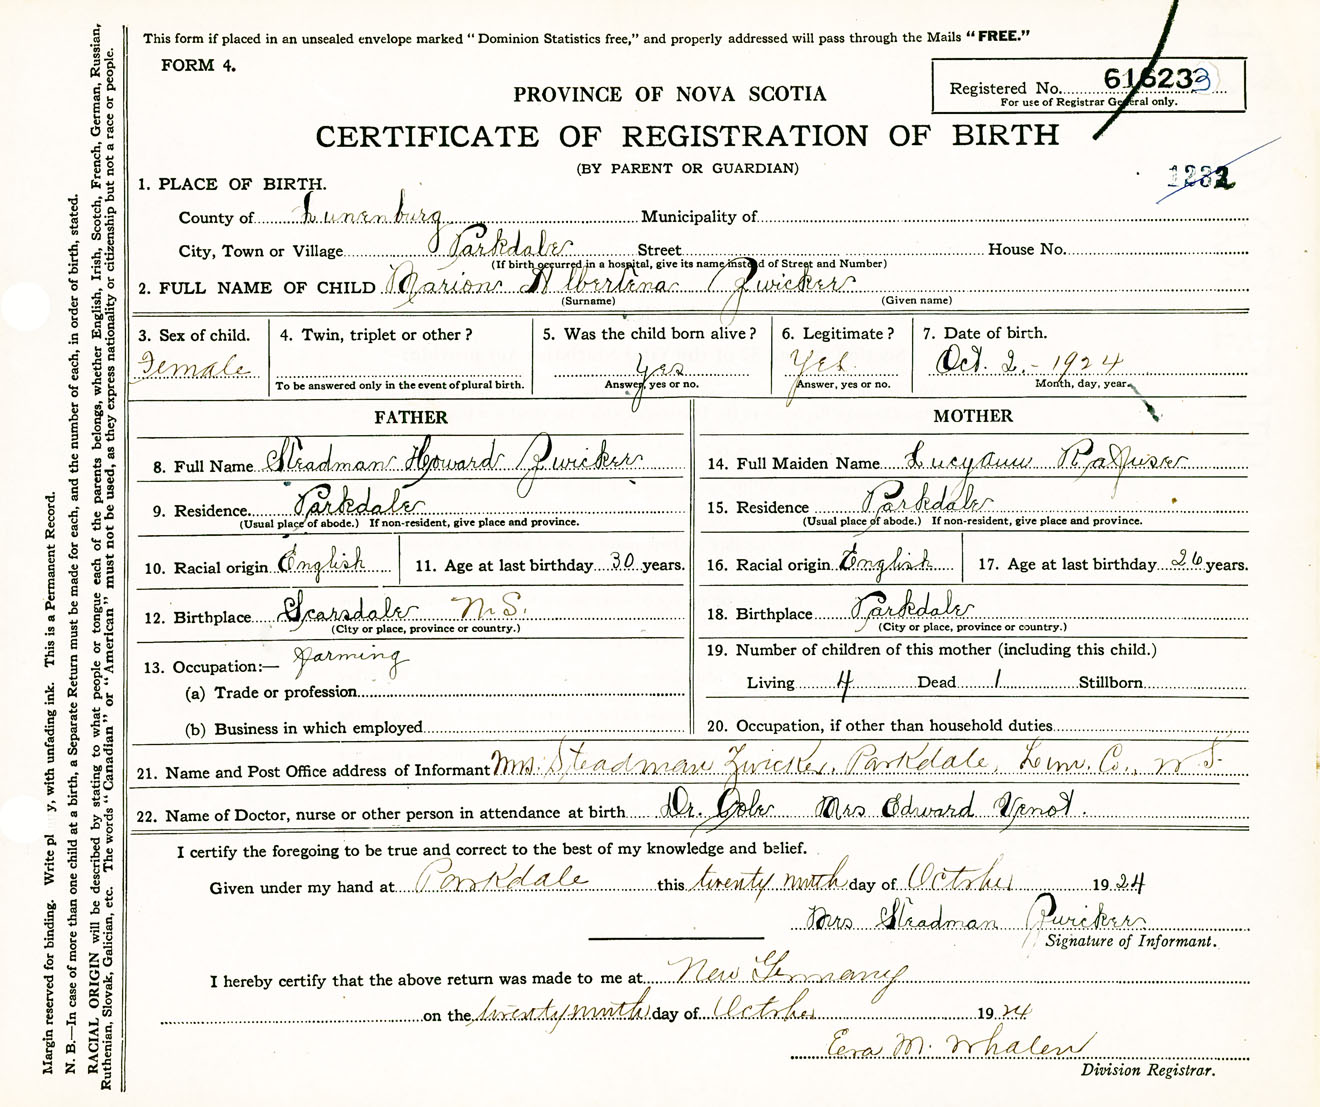 This form if placed in an unsealed envelope marked "Dominion Statistics free," and properly addressed will pass through the Mails "FREE."
FORM 4.
Registered No. 616233
For use of Registrar General only.
PROVINCE OF NOVA SCOTIA
CERTIFICATE OF REGISTRATION OF BIRTH
(BY PARENT OR GUARDIAN)
1282
1. PLACE OF BIRTH.
County of Lunenburg Municipality of
City, Town or Village Parkdale Street House No.
(If birth occurred in a hospital, give its name instead of Street and Number)
2. FULL NAME OF CHILD Marion Albertena Zwicker
(Surname) (Given name)
3. Sex of child. 4. Twin, triplet or other? 5. Was the child born alive? 6. Legitimate? 7. Date of birth.
Female yes Yes. Oct. 2.- 1924
To be answered only in the event of plural birth. Answer, yes or no. Answer, yes or no. Month, day, year.
FATHER
8. Full Name Steadman Howard Zwicker
9. Residence. Parkdale
(Usual place of abode.) If non-resident, give place and province.
10. Racial origin English 11. Age at last birthday 30 years.
12. Birthplace Scarsdale N.S.
(City or place, province or country.)
13. Occupation:— Farming
(a) Trade or profession
(b) Business in which employed
MOTHER
14. Full Maiden Name Lucy Ann Rafuse
15. Residence Parkdale
(Usual place of abode.) If non-resident, give place and province.
16. Racial origin English 17. Age at last birthday 26 years.
18. Birthplace Parkdale
(City or place, province or country.)
19. Number of children of this mother (including this child.)
Living 4 Dead 1 Stillborn
20. Occupation, if other than household duties
21. Name and Post Office address of Informant Mrs. Steadman Zwicker, Parkdale, Lun. Co., N S.
22. Name of Doctor, nurse or other person in attendance at birth Dr. Cole Mrs Edward Venot.
I certify the foregoing to be true and correct to the best of my knowledge and belief.
Given under my hand at Parkdale this twenty ninth day of October 1924
Mrs Steadman Zwicker
Signature of Informant.
I hereby certify that the above return was made to me at New Germany
on the twenty ninth day of October 1924
M. Whalen
Division Registrar.
Margin reserved for binding. Write pl y, with unfading ink. This is a Permanent Record.
N. B.—In case of more than one child at a birth, a Separate Return must be made for each, and the number of each, in order of birth, stated.
RACIAL ORIGIN will be described by stating to what people or tongue each of the parents belongs, whether English, Irish, Scotch, French, German, Russian,
Ruthenian, Slovak, Galician, etc. The words "Canadian" or "American" must not be used, as they express nationality or citizenship but not a race or people.